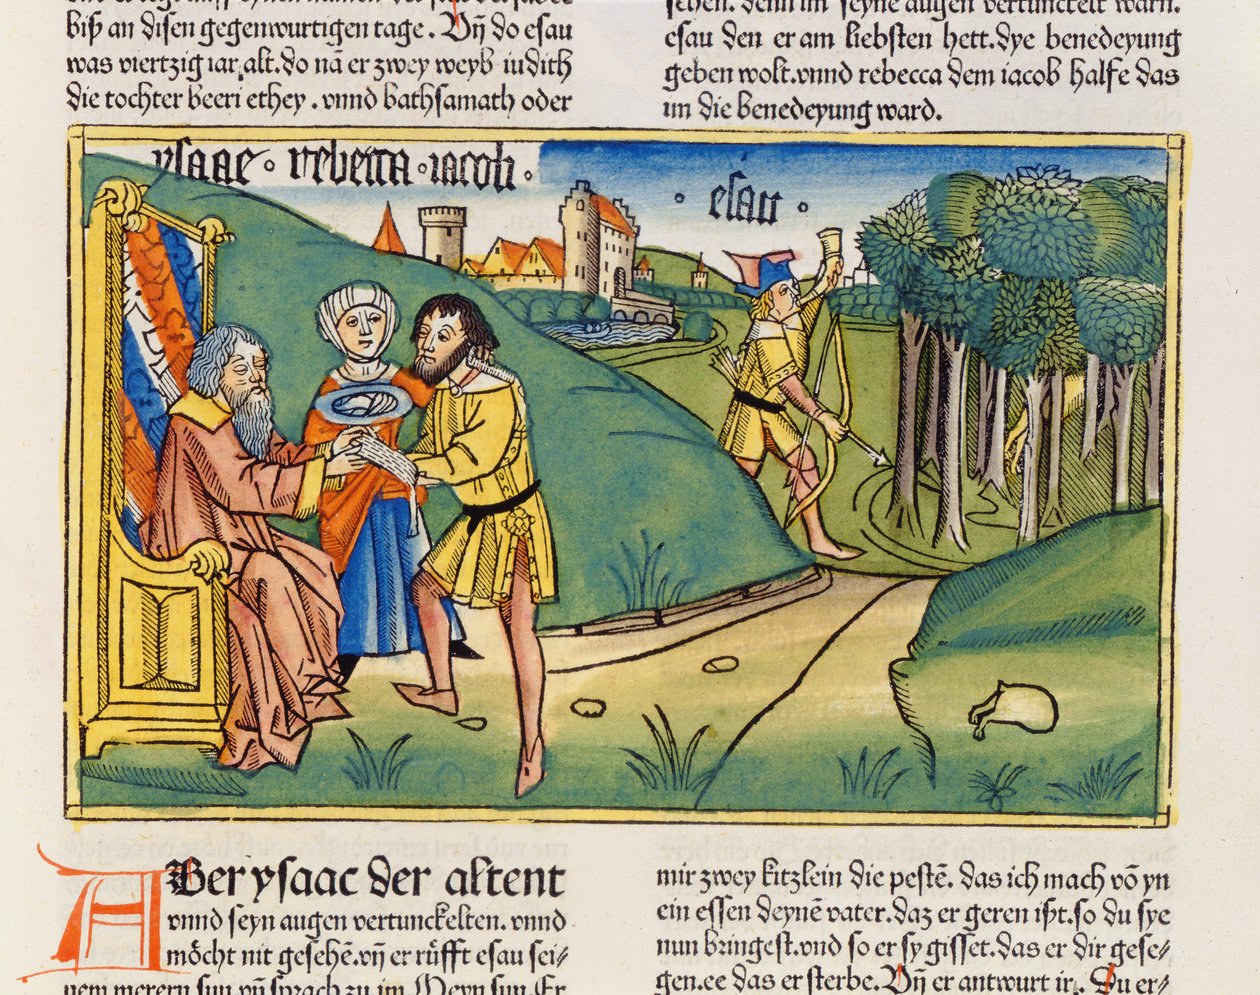 biß an disen gegenwurtigen tage. Vñ do esau
was viertzig iar alt. do nã er zwey weyb iudith
die tochter beeri ethey. vnnd bathsamath oder
sehen. denn im seyne augen vertunckelt warn.
esau den er am liebsten hett. dye benedeyung
geben wolt. vnnd rebecca dem iacob halfe das
im die benedeyung ward.
ysaac. rebecca. iacob.
. esau .
ABer ysaac der altent
vnnd seyn augen vertunckelten. vnnd
möcht nit gesehẽ. vñ er rüfft esau sei/
nem merern sun vñ sprach zu im Meyn sun. Er
mir zwey kitzlein die pestẽ. das ich mach võ yn
ein essen deynẽ vater. daz er geren ißt. so du sye
nun bringest. vnd so er sy gisset. das er dir gese/
gen. ee das er sterbe. Vñ er antwurt ir. Du er/